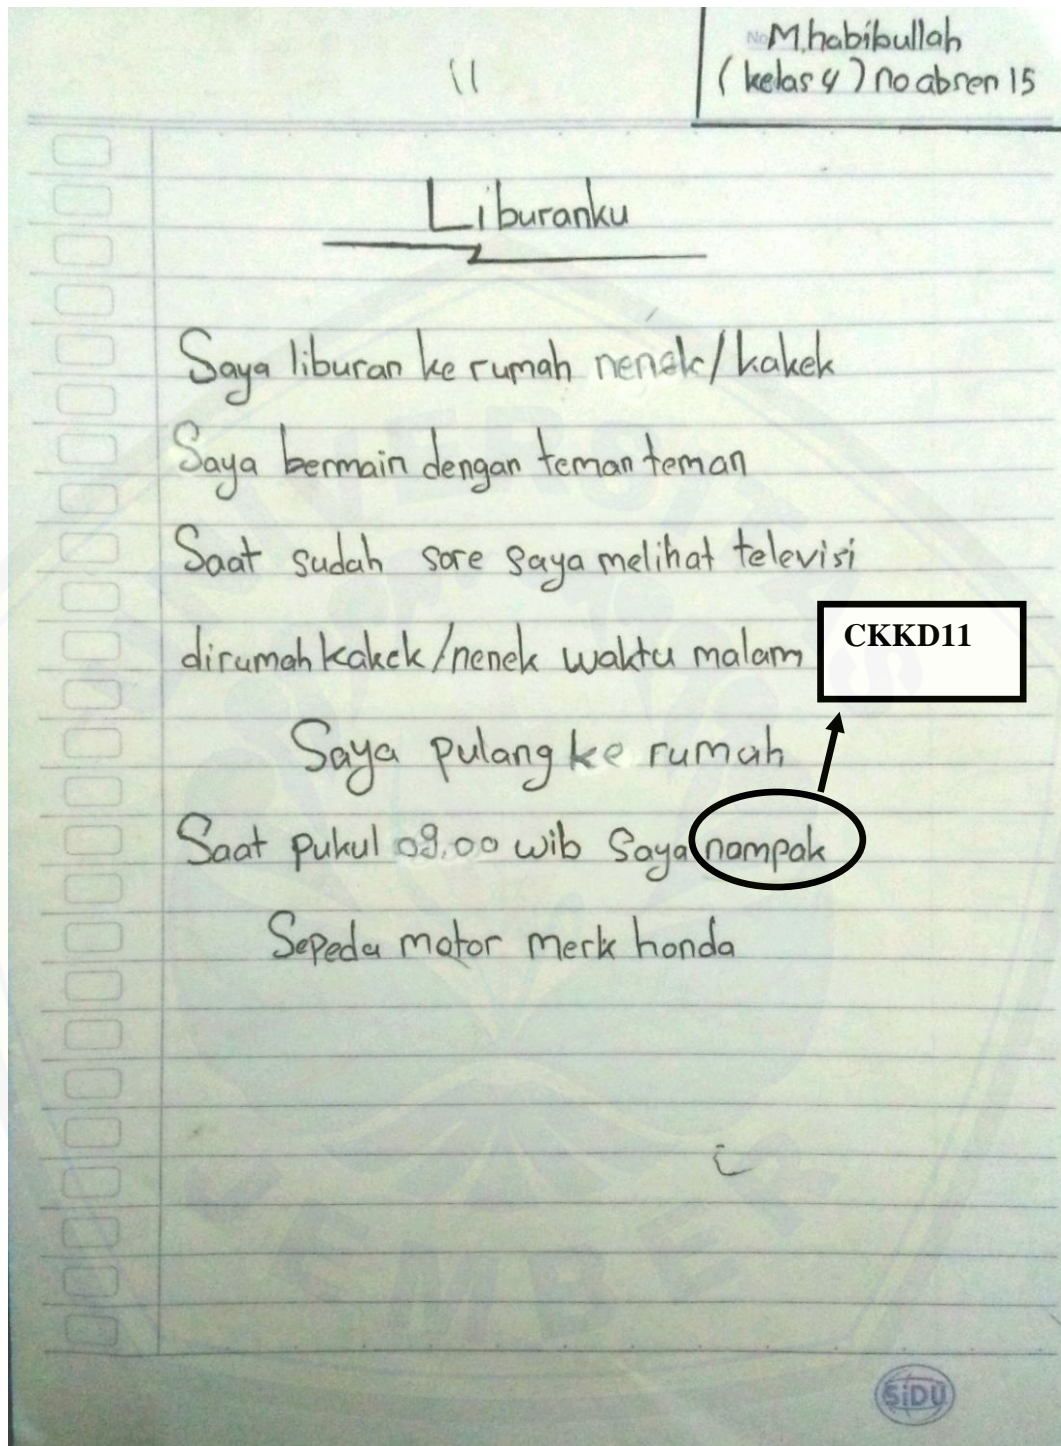 No M.habibullah
( kelas 4 ) no absen 15
11
Liburanku
Saya liburan ke rumah nenek/kakek
Saya bermain dengan teman teman
Saat sudah sore saya melihat televisi
dirumah kakek/nenek waktu malam
CKKD11
Saya pulang ke rumah
Saat pukul 09.00 wib Saya nampak
Sepeda motor merk honda
UNIVERSITAS
JEMBER
SiDU